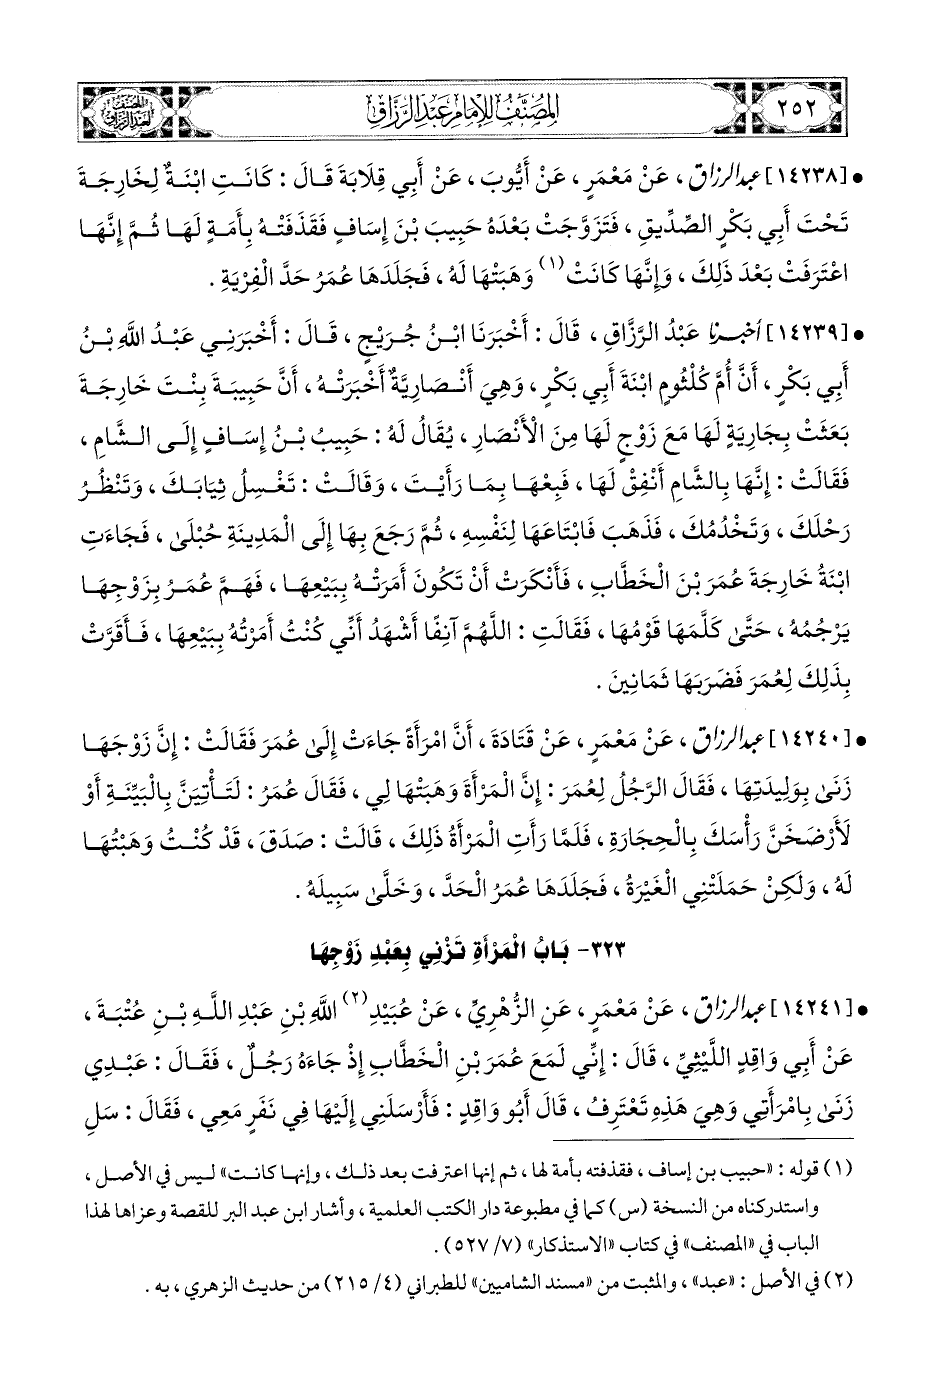 ٢٥٢
المصنف للإمام عبد الرزاق
المصنف لعبد الرزاق
• [١٤٢٣٨] عبد الرزاق ، عَنْ مَعْمَرٍ ، عَنْ أَيُّوبَ ، عَنْ أَبِي قِلَابَةَ قَالَ : كَانَتِ ابْنَةٌ لِخَارِجَةَ
تَحْتَ أَبِي بَكْرٍ الصِّدِّيقِ ، فَتَزَوَّجَتْ بَعْدَهُ حَبِيبَ بْنَ إِسَافٍ فَقَذَفَتْهُ بِأَمَةٍ لَهَا ثُمَّ إِنَّهَا
اعْتَرَفَتْ بَعْدَ ذَلِكَ ، وَإِنَّهَا كَانَتْ (١) وَهَبَتْهَا لَهُ ، فَجَلَدَهَا عُمَرُ حَدَّ الْفِرْيَةِ .
• [١٤٢٣٩] أخبرنا عَبْدُ الرَّزَّاقِ ، قَالَ : أَخْبَرَنَا ابْنُ جُرَيْجٍ ، قَالَ : أَخْبَرَنِي عَبْدُ اللَّهِ بْنُ
أَبِي بَكْرٍ ، أَنَّ أُمَّ كُلْثُومٍ ابْنَةَ أَبِي بَكْرٍ ، وَهِيَ أَنْصَارِيَّةٌ أَخْبَرَتْهُ ، أَنَّ حَبِيبَةَ بِنْتَ خَارِجَةَ
بَعَثَتْ بِجَارِيَةٍ لَهَا مَعَ زَوْجٍ لَهَا مِنَ الْأَنْصَارِ ، يُقَالُ لَهُ : حَبِيبُ بْنُ إِسَافٍ إِلَى الشَّامِ ،
فَقَالَتْ : إِنَّهَا بِالشَّامِ أَنْفِقْ لَهَا ، فَبِعْهَا بِمَا رَأَيْتَ ، وَقَالَتْ : تَغْسِلُ ثِيَابَكَ ، وَتَنْظُرُ
رَحْلَكَ ، وَتَخْدُمُكَ ، فَذَهَبَ فَابْتَاعَهَا لِنَفْسِهِ ، ثُمَّ رَجَعَ بِهَا إِلَى الْمَدِينَةِ حُبْلَى ، فَجَاءَتِ
ابْنَةُ خَارِجَةَ عُمَرَ بْنَ الْخَطَّابِ ، فَأَنْكَرَتْ أَنْ تَكُونَ أَمَرَتْهُ بِبَيْعِهَا ، فَهَمَّ عُمَرُ بِزَوْجِهَا
يَرْجُمُهُ ، حَتَّى كَلَّمَهَا قَوْمُهَا ، فَقَالَتِ : اللَّهُمَّ آنِفًا أَشْهَدُ أَنِّي كُنْتُ أَمَرْتُهُ بِبَيْعِهَا ، فَأَقَرَّتْ
بِذَلِكَ لِعُمَرَ فَضَرَبَهَا ثَمَانِينَ .
• [١٤٢٤٠] عبد الرزاق ، عَنْ مَعْمَرٍ ، عَنْ قَتَادَةَ ، أَنَّ امْرَأَةً جَاءَتْ إِلَى عُمَرَ فَقَالَتْ : إِنَّ زَوْجَهَا
زَنَى بِوَلِيدَتِهَا ، فَقَالَ الرَّجُلُ لِعُمَرَ : إِنَّ الْمَرْأَةَ وَهَبَتْهَا لِي ، فَقَالَ عُمَرُ : لَتَأْتِيَنَّ بِالْبَيِّنَةِ أَوْ
لَأَرْضَخَنَّ رَأْسَكَ بِالْحِجَارَةِ ، فَلَمَّا رَأَتِ الْمَرْأَةُ ذَلِكَ ، قَالَتْ : صَدَقَ ، قَدْ كُنْتُ وَهَبْتُهَا
لَهُ ، وَلَكِنْ حَمَلَتْنِي الْغَيْرَةُ ، فَجَلَدَهَا عُمَرُ الْحَدَّ ، وَخَلَّى سَبِيلَهُ .
٣٢٣- بَابُ الْمَرْأَةِ تَزْنِي بِعَبْدِ زَوْجِهَا
• [١٤٢٤١] عبد الرزاق ، عَنْ مَعْمَرٍ ، عَنِ الزُّهْرِيِّ ، عَنْ عُبَيْدِ (٢) اللَّهِ بْنِ عَبْدِ اللَّهِ بْنِ عُتْبَةَ ،
عَنْ أَبِي وَاقِدٍ اللَّيْثِيِّ ، قَالَ : إِنِّي لَمَعَ عُمَرَ بْنِ الْخَطَّابِ إِذْ جَاءَهُ رَجُلٌ ، فَقَالَ : عَبْدِي
زَنَى بِامْرَأَتِي وَهِيَ هَذِهِ تَعْتَرِفُ ، قَالَ أَبُو وَاقِدٍ : فَأَرْسَلَنِي إِلَيْهَا فِي نَفَرٍ مَعِي ، فَقَالَ : سَلِ
(١) قوله : «حبيب بن إساف ، فقذفته بأمة لها ، ثم إنها اعترفت بعد ذلك ، وإنها كانت» ليس في الأصل ،
واستدركناه من النسخة (س) كما في مطبوعة دار الكتب العلمية ، وأشار ابن عبد البر للقصة وعزاها لهذا
الباب في «المصنف» في كتاب «الاستذكار» (٧/ ٥٢٧) .
(٢) في الأصل : «عبد» ، والمثبت من «مسند الشاميين» للطبراني (٤/ ٢١٥) من حديث الزهري ، به .